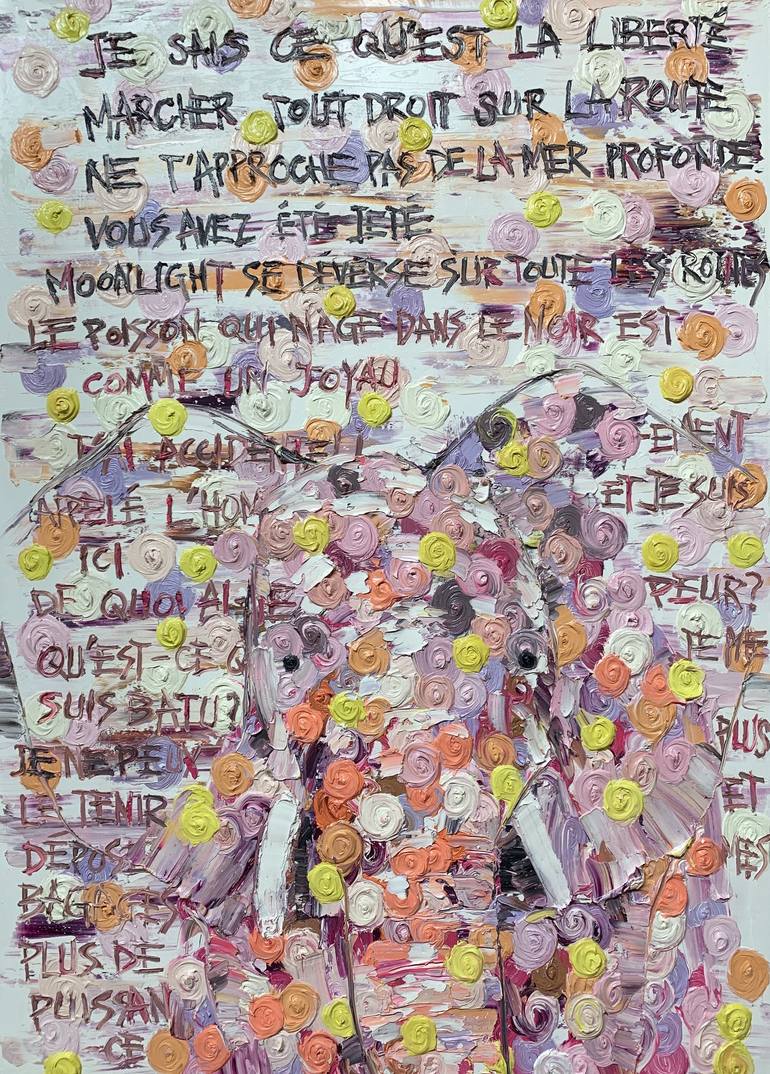 JE SAIS CE QU'EST LA LIBERTÉ
MARCHER TOUT DROIT SUR LA ROUTE
NE T'APPROCHE PAS DE LA MER PROFONDE.
VOUS AVEZ ÉTÉ JETÉ
MOONLIGHT SE DÉVERSE SUR TOUTE LES ROUTES
LE POISSON QUI NAGE DANS LE NOIR EST
COMME UN JOYAU
J'AI ACCIDENTELL -EMENT
APPELÉ L'HOM ET JE SUIS
ICI
DE QUOI AI-JE PEUR?
QU'EST-CE Q JE ME
SUIS BATU?
JE NE PEUX PLUS
LE TENIR ET
DÉPOSÉ
BAGAGES
PLUS DE
PUISSAN
CE